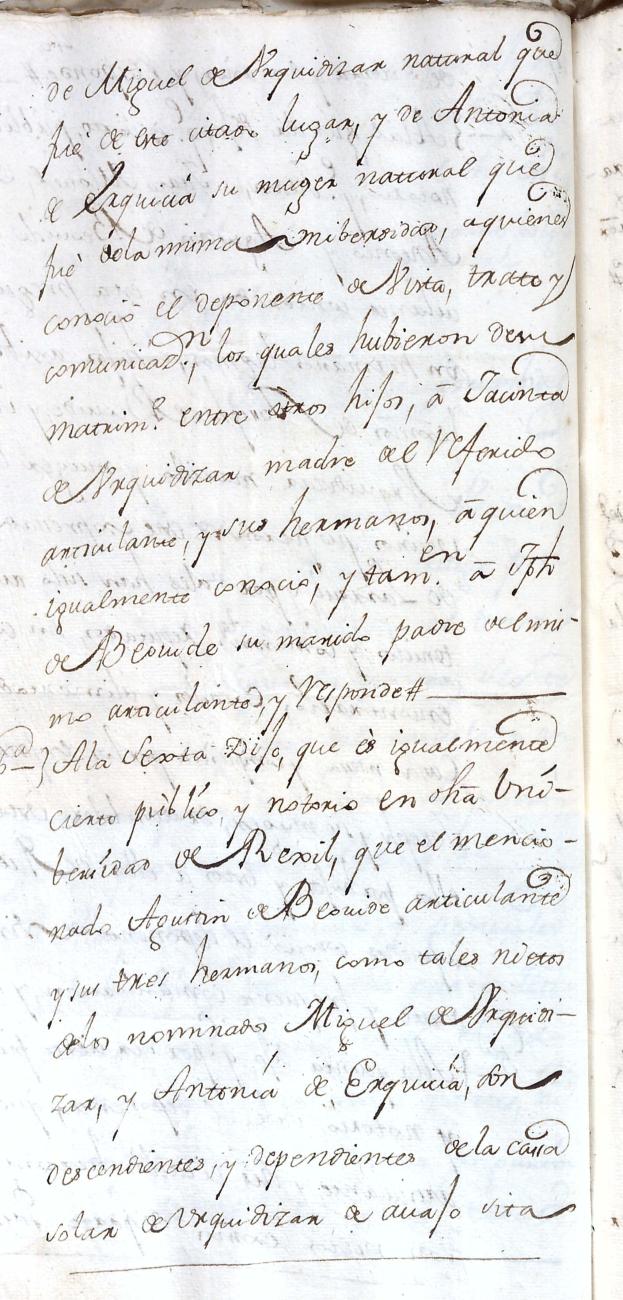 de Miguel de Vrquidizar natural que
fué de este citado lugar, y de Antonia
de Erquicia su muger natural que
fué dela misma Vnibersidad, a quienes
conoció el deponente de Vista, trato y
comunicadn, los quales hubieron de su
matrim.o entre otros hijos, á Jacinta
de Vrquidizar madre del Referido
articulante, y sus hermanos, á quien
igualmente conoció, y tam.en á Jph
de Beovide su marido padre del mis-
mo articulante, y Responde#
A la Sexta Dijo, que es igualmente
cierto público, y notorio en dha Vni-
bersidad de Rexil, que el mencio-
nado Agustin de Beovide articulante
y sus tres hermanos, como tales nietos
delos nominados Miguel de Vrquidi-
zar, y Antonia de Erquicia, son
descendientes, y dependientes dela casa
solar de Vrquidizar de auajo sita